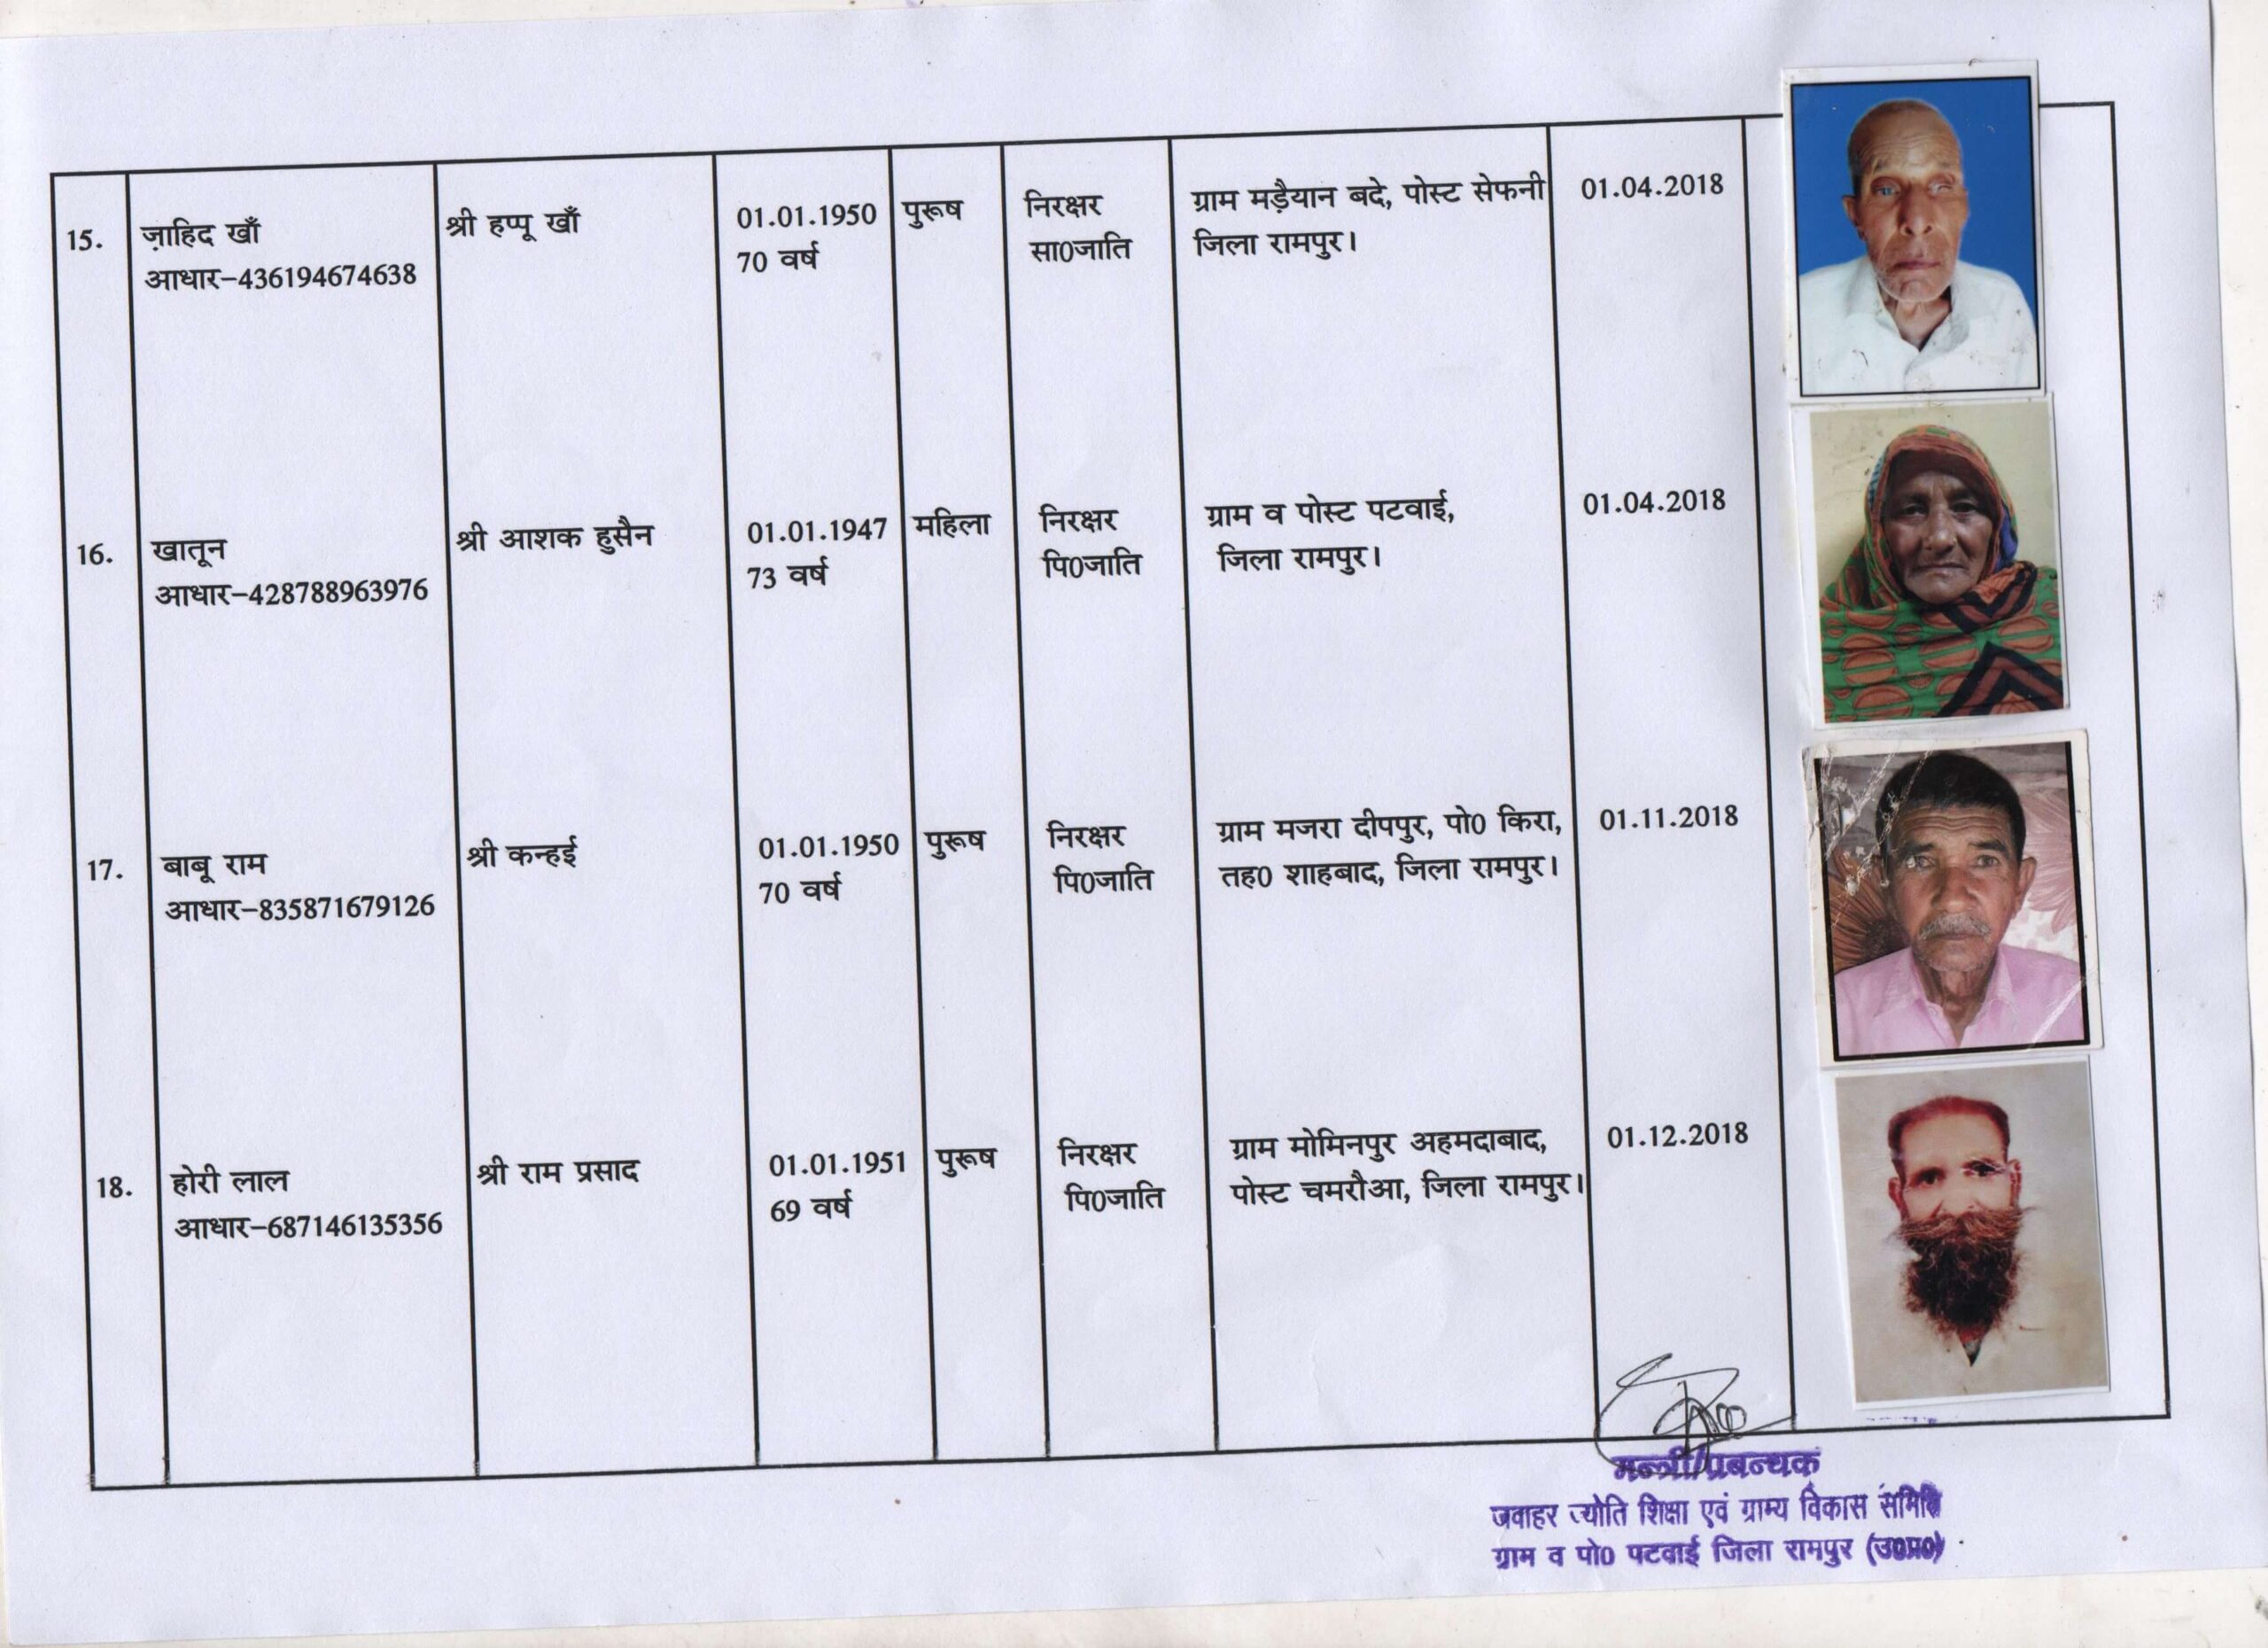 15.
ज़ाहिद खाँ
आधार–436194674638
श्री हप्पू खाँ
01.01.1950
70 वर्ष
पुरूष
निरक्षर
सा0जाति
ग्राम मड़ैयान बदे, पोस्ट सेफनी
जिला रामपुर।
01.04.2018
16.
खातून
आधार–428788963976
श्री आशक हुसैन
01.01.1947
73 वर्ष
महिला
निरक्षर
पि0जाति
ग्राम व पोस्ट पटवाई,
जिला रामपुर।
01.04.2018
17.
बाबू राम
आधार–835871679126
श्री कन्हई
01.01.1950
70 वर्ष
पुरूष
निरक्षर
पि0जाति
ग्राम मजरा दीपपुर, पो0 किरा,
तह0 शाहबाद, जिला रामपुर।
01.11.2018
18.
होरी लाल
आधार–687146135356
श्री राम प्रसाद
01.01.1951
69 वर्ष
पुरूष
निरक्षर
पि0जाति
ग्राम मोमिनपुर अहमदाबाद,
पोस्ट चमरौआ, जिला रामपुर।
01.12.2018
मन्त्री/प्रबन्धक
जवाहर ज्योति शिक्षा एवं ग्राम्य विकास समिति
ग्राम व पो0 पटवाई जिला रामपुर (उ0प्र0)